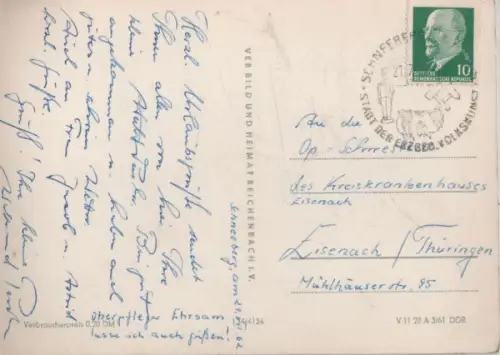 Herzl. Urlaubsgrüße sendet
Ihnen allen von hier Ihre
kleine Bin gut
angekommen u. haben auch
gutes u. schönes Wetter.
Auch an Frau u. Astrid
Grüße.
Gruß! Ihre kleine
Schneeberg, am 21. 62
Oberpfleger Ehrsam
lasse ich auch grüßen!
Verbraucherpreis 0,20 DM
VEB BILD UND HEIMAT REICHENBACH I. V.
SCHNEEBERG
STADT DER ERZGEB. VOLKSKUNST
DEUTSCHE
DEMOKRATISCHE REPUBLIK
10
An die
Op-Schwe
des Kreiskrankenhauses
Eisenach
Eisenach / Thüringen
Mühlhäuserstr. 95
V 11 28 A 3/61 DDR